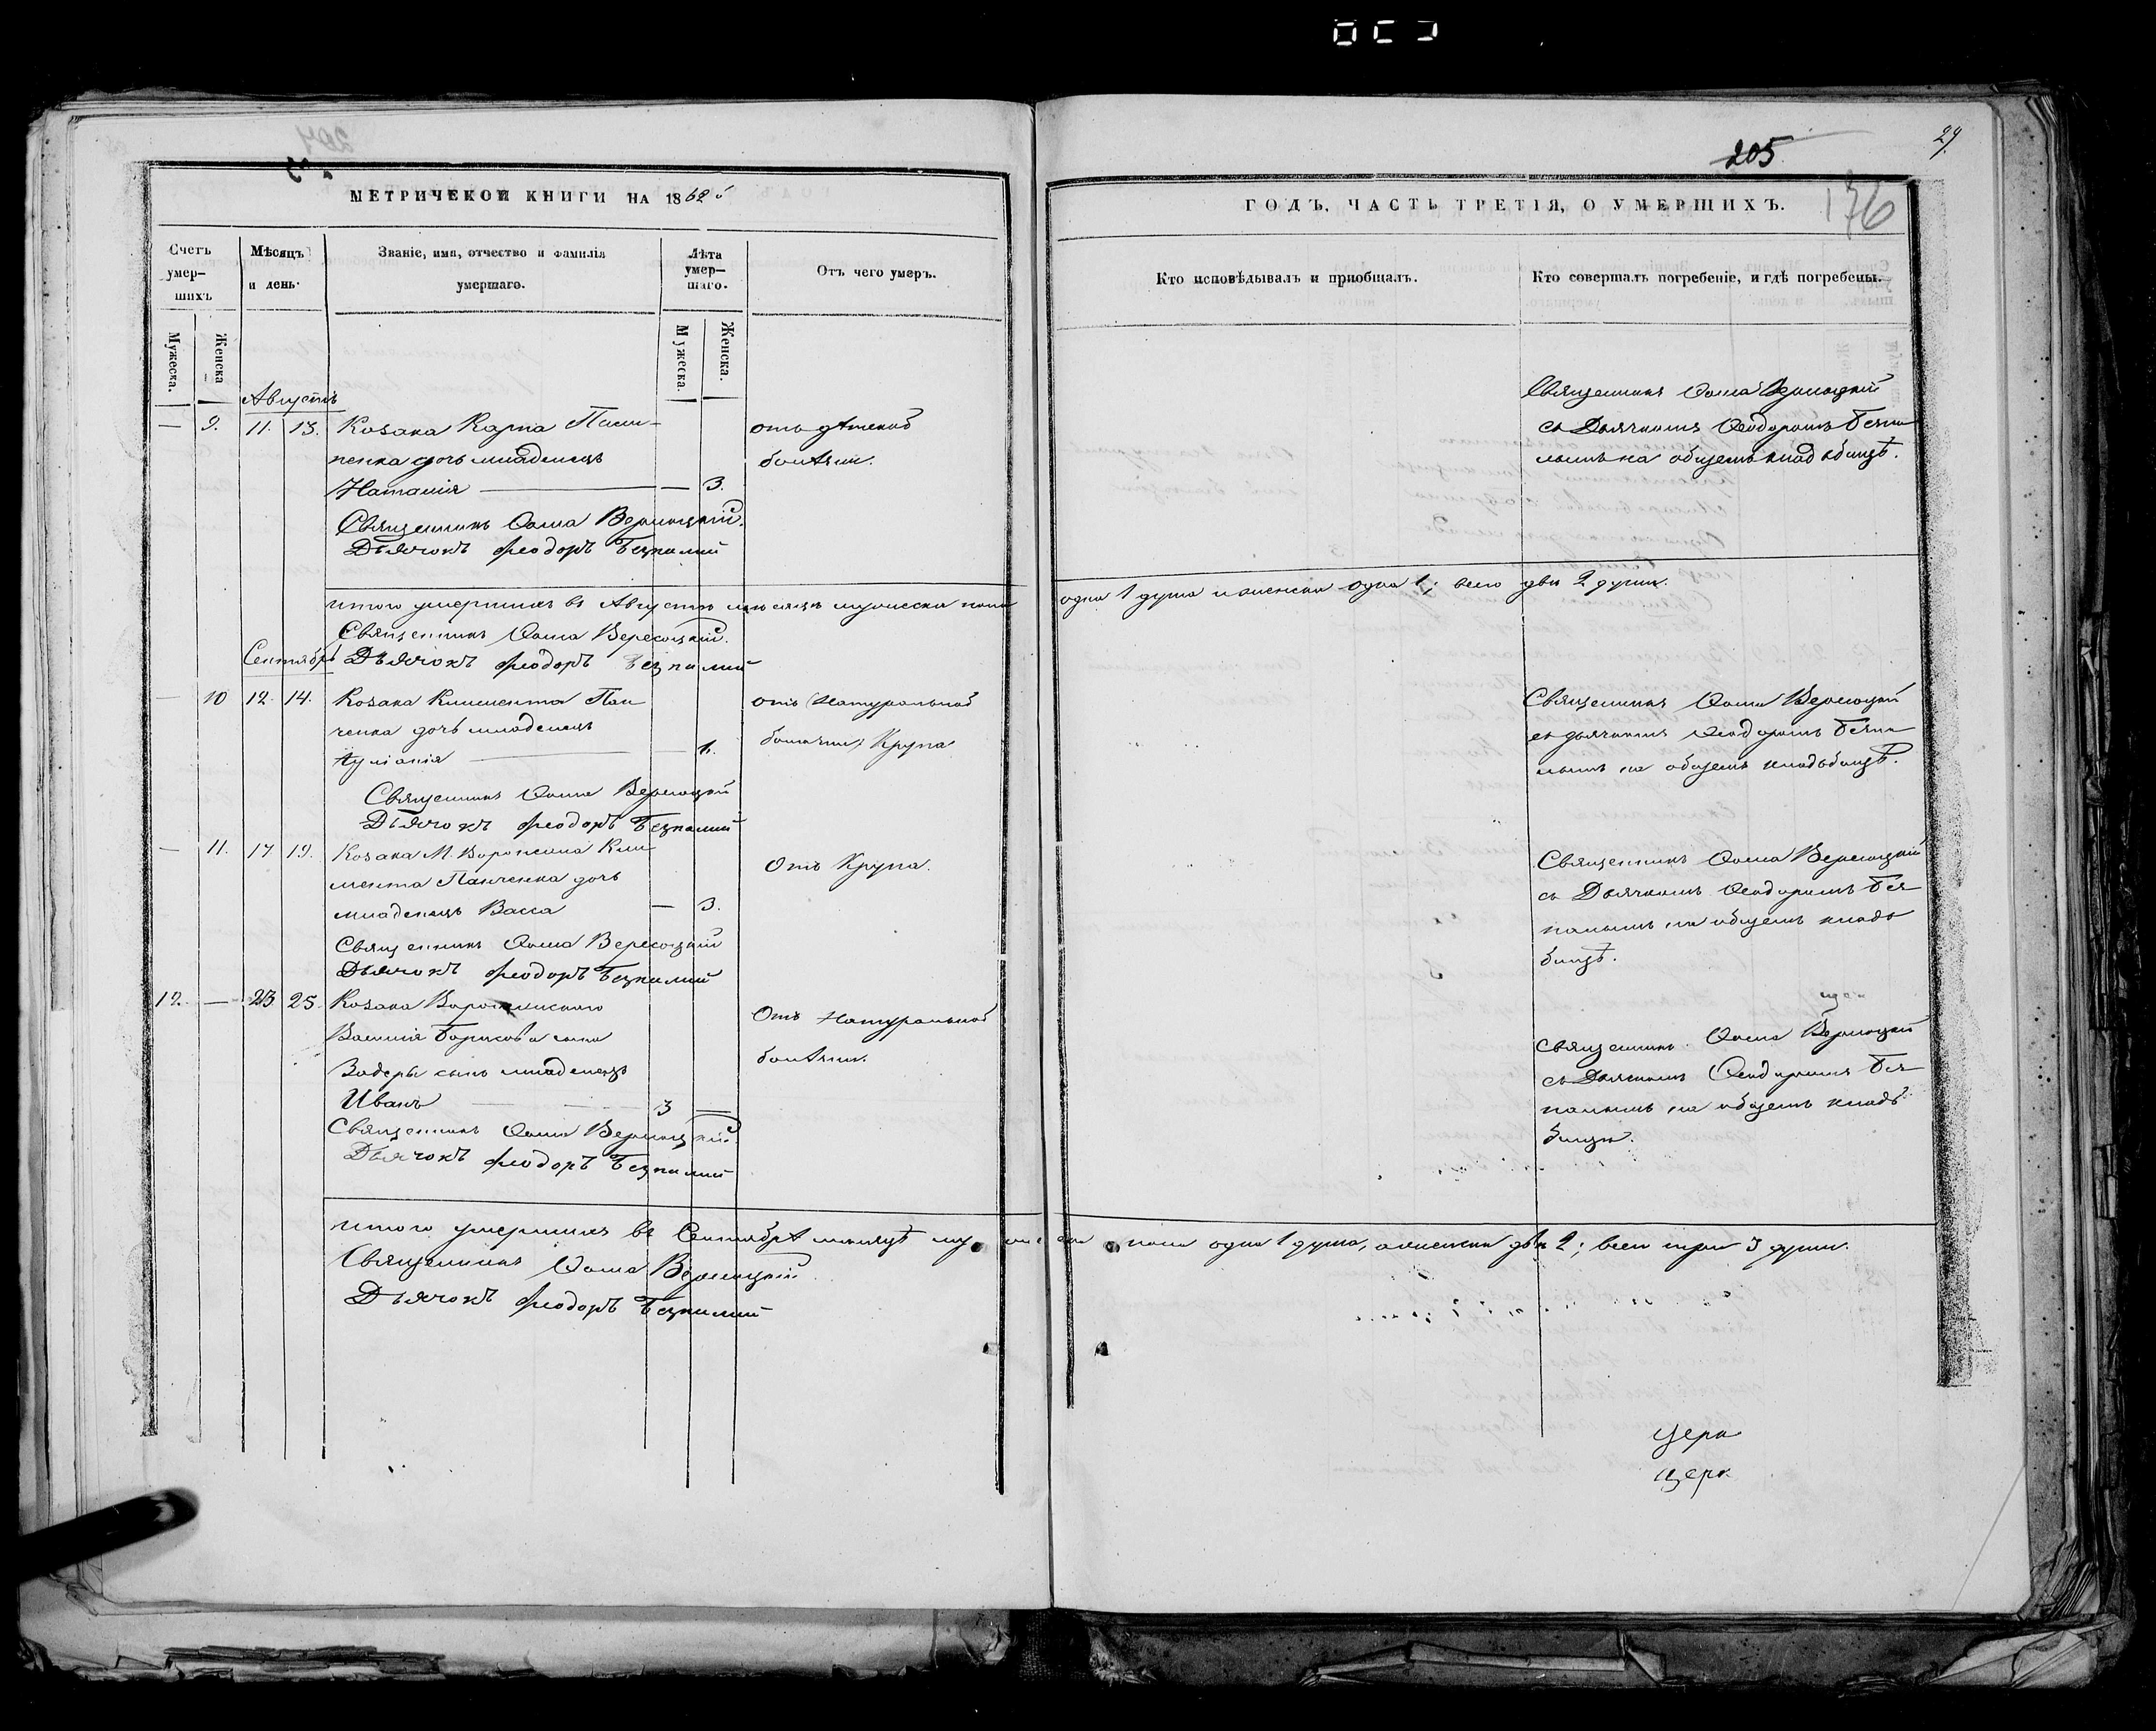 205
29
176
МЕТРИЧЕКОЙ КНИГИ НА 1862 й
ГОДЪ, ЧАСТЬ ТРЕТІЯ, О УМЕРШИХЪ.
Счетъ умер-шихъ
Мѣсяцъ и день.
Званіе, имя, отчество и фамилія умершаго.
Лѣта умер-шаго.
Отъ чего умеръ.
Кто исповѣдывалъ и пріобщалъ.
Кто совершалъ погребеніе, и гдѣ погребены.
Мужеска.
Женска
Мужеска.
Женска.
Августъ
— 9. 11. 13. Козака Карпа
отъ дѣтской
Священникъ Ѳома Вересоцкій
ченка дочь младенецъ
болѣзни.
съ Дьячкомъ Ѳеодоромъ Безпа
Наталія — — 3.
лымъ на общемъ кладбищѣ.
Священникъ Ѳома Вересоцкій.
Дьячокъ Феодоръ Безпалий
Итого умершихъ въ Августѣ мѣсяцѣ мужеска пола
одна 1 душа и женска одна 1; всего двѣ 2 души.
Священникъ Ѳома Вересоцкій.
Сентябрь
Дьячокъ Феодоръ Безпалий
— 10 12. 14. Козака Климента Пан
отъ Натуральной
Священникъ Ѳома Вересоцкій
ченка дочь младенецъ
болѣзни; Крупа
съ дьячкомъ Ѳеодоромъ Безпа
Іуліанія — — 1.
лымъ на общемъ кладбищѣ.
Священникъ Ѳома Вересоцкій
Дьячокъ Феодоръ Безпалий
— 11. 17 19. Козака М. Воронина Кли
Отъ Крупа.
Священникъ Ѳома Вересоцкій
мента Панченка дочь
съ Дьячкомъ Ѳеодоромъ Без
младенецъ Васса — 3.
палымъ на общемъ кладъ
Священникъ Ѳома Вересоцкій
бищѣ.
Дьячокъ Феодоръ Безпалий
12. — 23 25. Козака
Отъ Натуральной
Священникъ Ѳома Вересоцкій
Василія Борисова сына
болѣзни.
съ Дьячкомъ Ѳеодоромъ Без
сынъ младенецъ
палымъ на общемъ кладъ
Иванъ — 3 —
бищѣ.
Священникъ Ѳома Вересоцкій.
Дьячокъ Феодоръ Безпалий
Итого умершихъ въ Сентябрѣ мѣсяцѣ мужеска пола одна 1 душа, а женска двѣ 2; всего три 3 души.
Священникъ Ѳома Вересоцкій
Дьячокъ Феодоръ Безпалий
Церк
церк